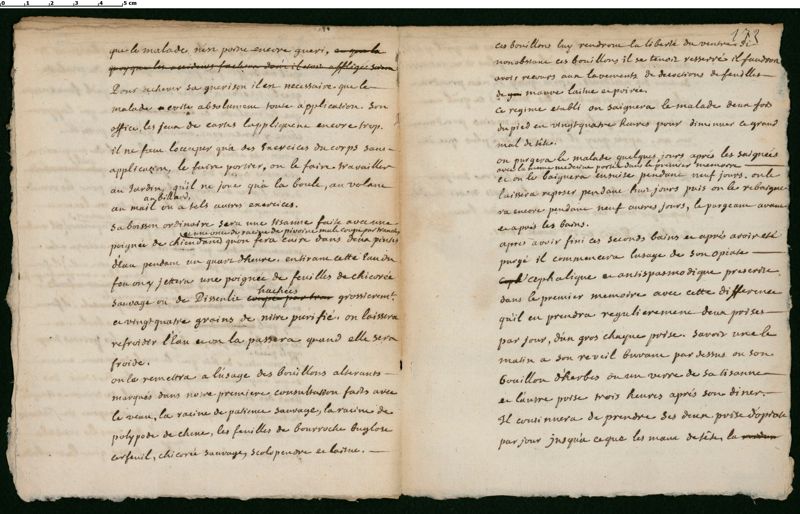 0 1 2 3 4 5 cm
que le malade n'est point encore gueri,
Pour achever sa guerison il est necessaire que le
malade evite absolument toute application. Son
office, les jeux de cartes l'appliquent encore trop.
il ne faut l'occuper qu'a des Exercices du corps sans
application, le faire porter, ou le faire travailler
au Jardin, qu'il ne joue qu'a la boule, au volant
au billard,
au mail ou a tels autres exercices.
Sa boisson ordinaire sera une tisanne faite avec une
et une once de racine de pivoine male coupé par tranches
poignée de chiendand qu'on fera cuire dans deux pintes
d'eau pendant un quart d'heure. en tirant cette Eau du
feu on y jettera une poignée de feuilles de chicorée
hachées
sauvage ou de Pissenlit grossierement
et vingt quatre grains de nitre purifié. on laissera
refroidir l'Eau et on la passera quand elle sera
froide.
on le remettra a l'usage des bouillons alterants
marqués dans notre premiere consultation faits avec
le veau, la racine de patience sauvage, la racine de
polypode de chene, les feuilles de bourroche buglose
cerfeuil, chicorée sauvage, scolopendre et laitue.
123
ces bouillons luy rendront la liberté du ventre. Si
nonobstant ces bouillons il se tenoit resserré il faudroit
avoir recours aux lavements de decoctions de feuilles
de mauve laitue et poirée.
ce regime etabli on saignera le malade deux fois
du pied en vingt quatre heures pour diminuer ce grand
mal de tête.
on purgera le malade quelques jours après les saignées
avec la meme medecine portée dans le premier memoire
et on le baignera ensuite pendant neuf jours. on le
laissera reposer pendant huit jours puis on le rebaigne
ra encore pendant neuf autres jours, le purgeant avant
et après les bains.
après avoir fini ces seconds bains et après avoir eté
purgé il commencera l'usage de son opiate
cephalique et antispasmodique prescrite
dans le premier memoire avec cette difference
qu'il en prendra regulierement deux prises
par jour, d'un gros chaque prise. Savoir une le
matin a son reveil buvant par dessus ou son
Bouillon d'herbes ou un verre de sa tisanne
et l'autre prise trois heures après son diner.
Il continuera de prendre ses deux prises d'opiate
par jour jusqu'a ce que les maux de tête, la